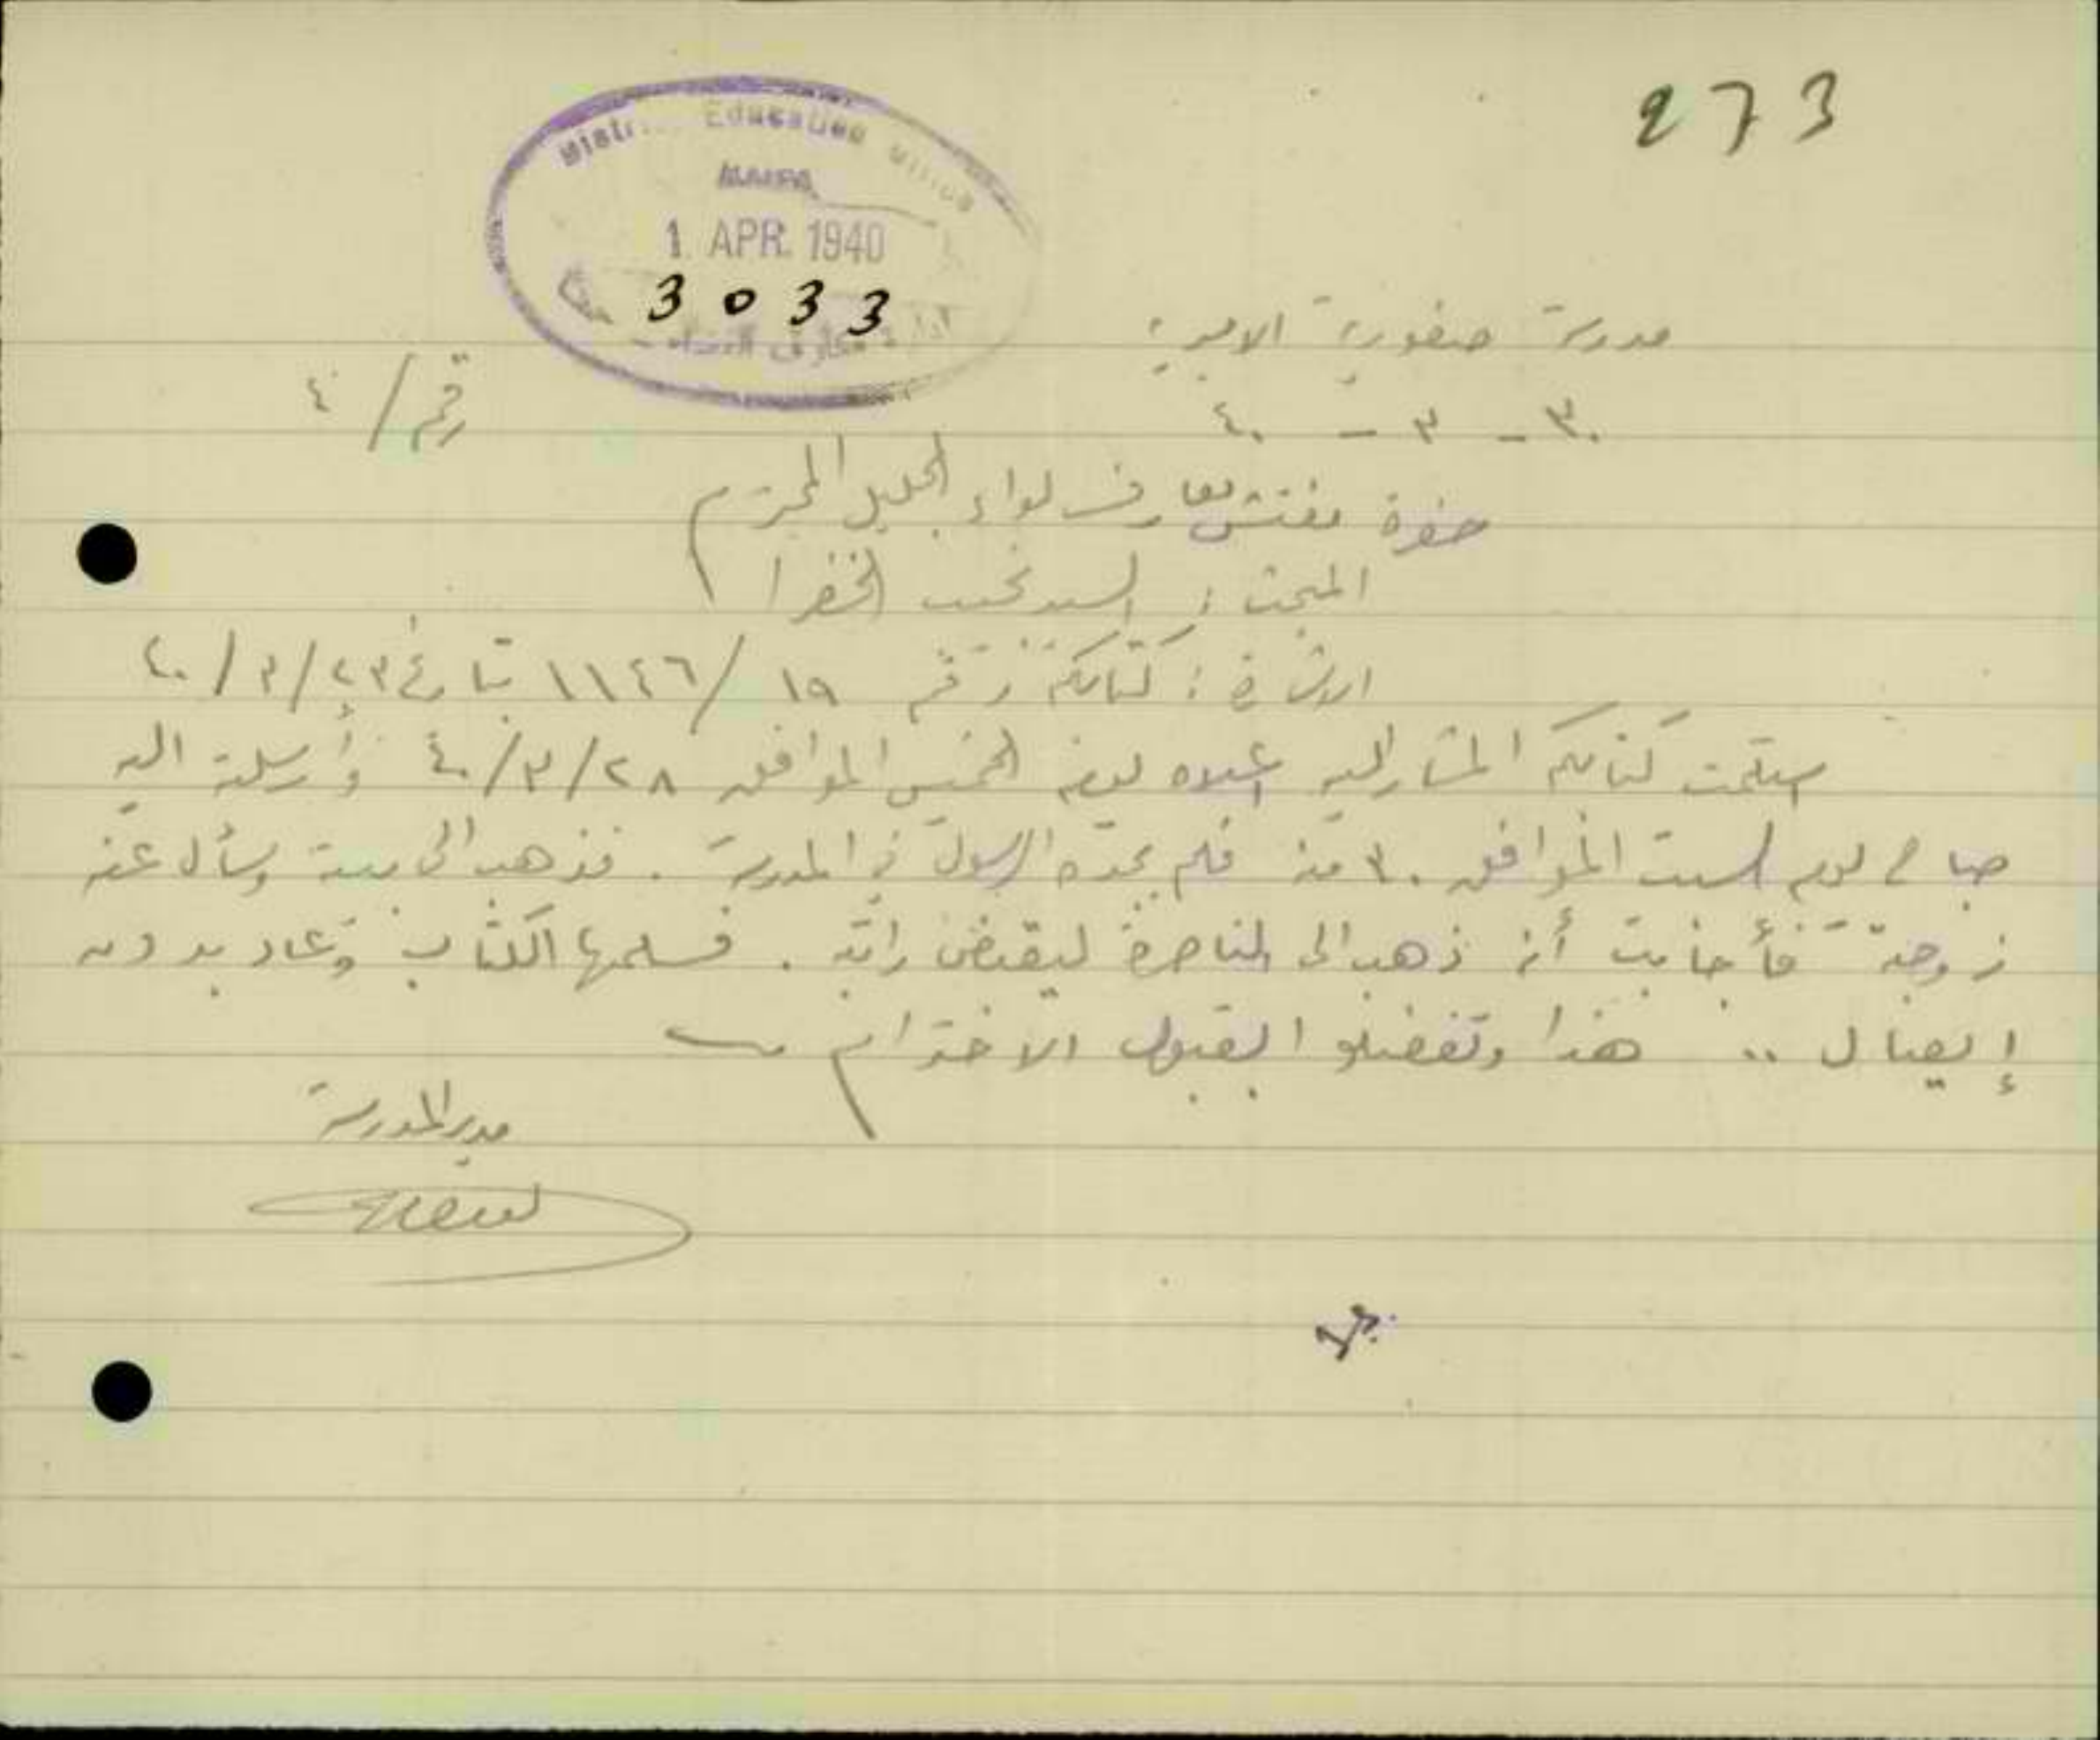 273
District Education Office
HAIFA
1 APR. 1940
3033
مدرسة صفورية الاميرية
٣٠ - ٣ - ٤٠
رقم / ٤
حضرة مفتش معارف لواء الجليل المحترم
المبحث : السيد نجيب الخضرا
الاشارة : كتابكم رقم ١٩ / ١١٤٦ بتاريخ ٢٣/٣/٤٠
استلمت كتابكم المشار اليه اعلاه يوم الخميس الموافق ٢٨/٣/٤٠ وأرسلته اليه
صباح يوم السبت الموافق ٣٠ منه فلم يجده الرسول في المدرسة . فذهب الى بيته وسأل عنه
زوجته فأجابت أنه ذهب الى الناصرة ليقبض راتبه . فسلمها الكتاب وعاد بدون
إيصال .. هذا وتفضلوا بقبول الاحترام
مدير المدرسة